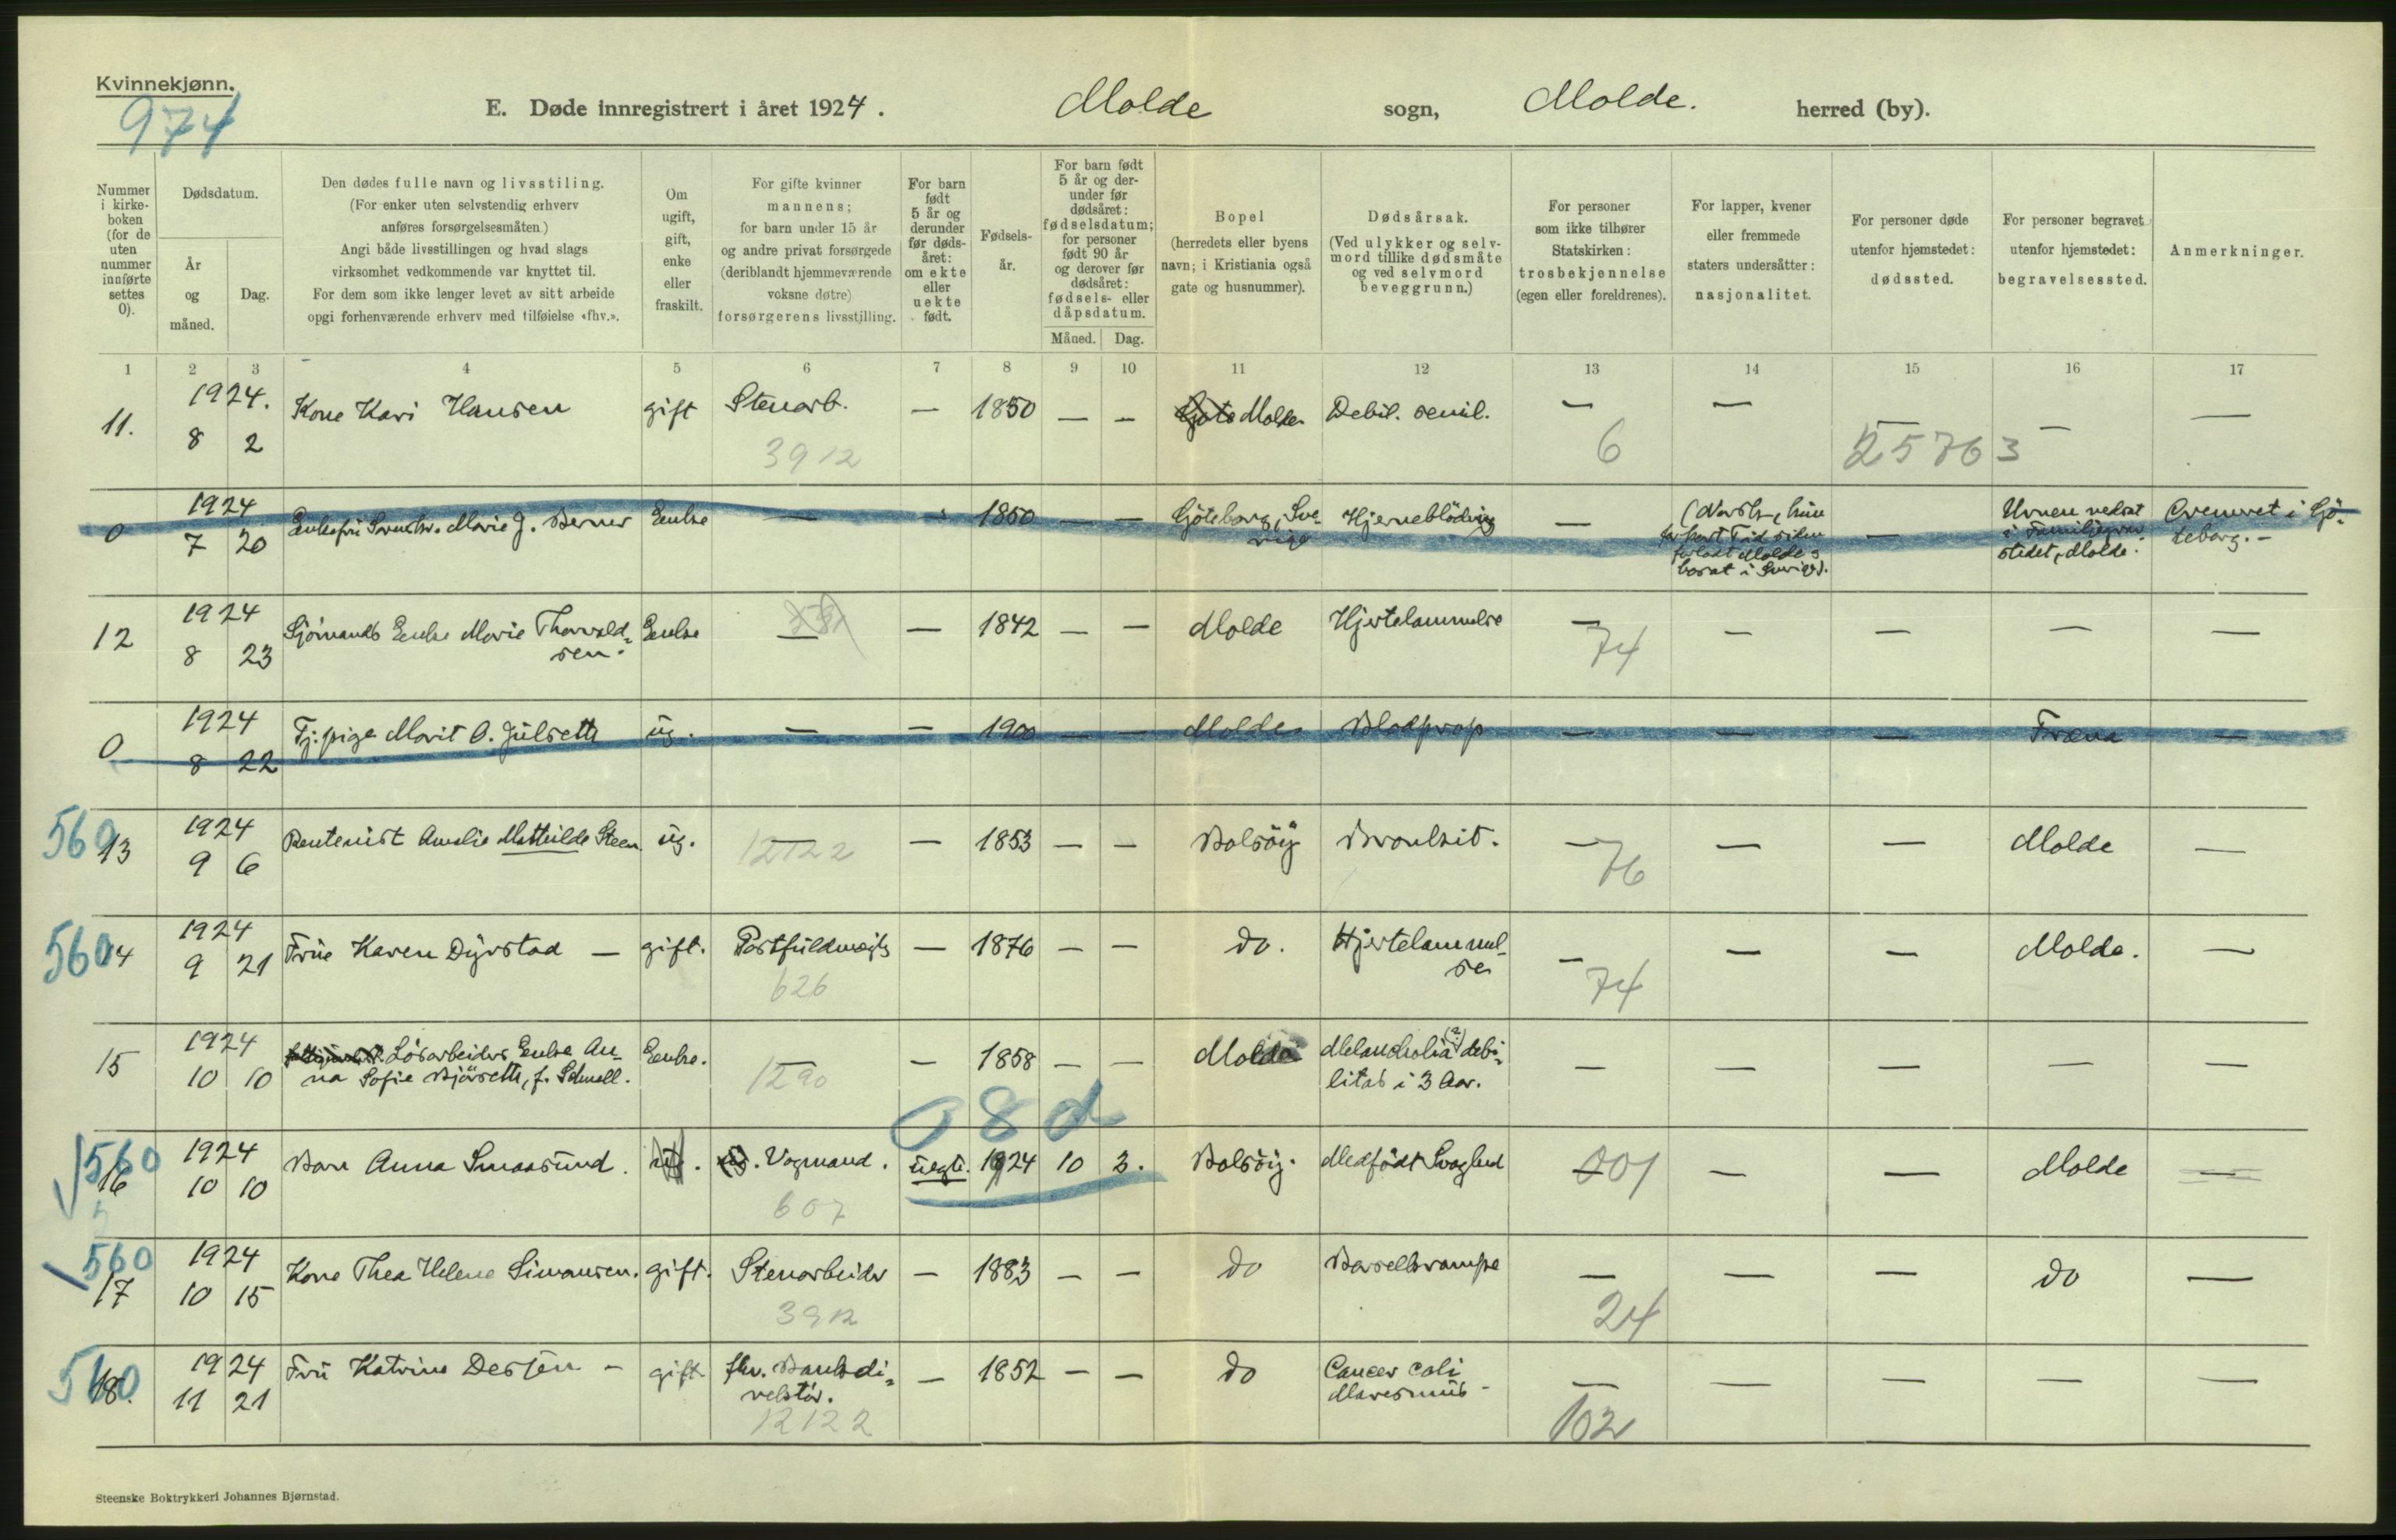 Kvinnekjønn.
974
E. Døde innregistrert i året 1924. Molde sogn, Molde. herred (by).
Nummer i kirke-boken (for de uten nummer innførte settes 0).
Dødsdatum.
År og måned.
Dag.
Den dødes fulle navn og livsstiling.
(For enker uten selvstendig erhverv
anføres forsørgelsesmåten.)
Angi både livsstillingen og hvad slags
virksomhet vedkommende var knyttet til.
For dem som ikke lenger levet av sitt arbeide
opgi forhenværende erhverv med tilføielse «fhv.».
Om
ugift,
gift,
enke
eller
fraskilt.
For gifte kvinner
mannens;
for barn under 15 år
og andre privat forsørgede
(deriblandt hjemmeværende
voksne døtre)
forsørgerens livsstilling.
For barn
født
5 år og
derunder
før døds-
året:
om ekte
eller
uekte
født.
Fødsels-
år.
For barn født
5 år og der-
under før
dødsåret:
fødselsdatum;
for personer
født 90 år
og derover før
dødsåret:
fødsels- eller
dåpsdatum.
Måned. Dag.
Bopel
(herredets eller byens
navn; i Kristiania også
gate og husnummer).
Dødsårsak.
(Ved ulykker og selv-
mord tillike dødsmåte
og ved selvmord
beveggrunn.)
For personer
som ikke tilhører
Statskirken:
trosbekjennelse
(egen eller foreldrenes).
For lapper, kvener
eller fremmede
staters undersåtter:
nasjonalitet.
For personer døde
utenfor hjemstedet:
dødssted.
For personer begravet
utenfor hjemstedet:
begravelsessted.
Anmerkninger.
1 2 3 4 5 6 7 8 9 10 11 12 13 14 15 16 17
11. 1924. 8 2 Kone Kari Hansen gift Stenarb. — 1850 — — Molde Debil. senil. — — — — —
3912 6 25763
0 1924 7 20 Marie J. Berner Enke — 1850 — — Gjøteborg, Sve-
rige Hjerneblödning — (Norsk, hun
for kort Tid siden
forlodt Molde &
bosat i Sverige). — Urnen nedsat
i Familiegrav-
stedet, Molde. Cremeret i Gjö-
teborg. —
12 1924 8 23 Sjömands Enke Marie Thorvald-
sen. Enke — — 1842 — — Molde Hjertelammelse — — — — —
74
0 1924 8 22 Tj.pige Marit O. Julseth ug. — — 1900 — — Molde Blodprop — — — Fræna —
560
13 1924 9 6 Rentenist Amalie Mathilde Steen ug. — — 1853 — — Bolsöy Bronkit. — — — Molde —
12122 76
560
14 1924 9 21 Frue Karen Dyrstad — gift. Postfuldmægtig — 1876 — — do. Hjertelammel-
se — — — Molde. —
626 74
15 1924 10 10 Lösarbeiders Enke An-
na Sofie Bjørseth, f. Schnell. Enke. — — 1858 — — Molde Melancholia (?) debi-
litas i 3 Aar. — — — — —
1290
08d
560
16 1924 10 10 Barn Anna Smaasund. Vognmand. uegte. 1924 10 3. Bolsöy. Medfödt Svaghed — — Molde —
607 01
560
17 1924 10 15 Kone Thea Helene Simonsen. gift. Stenarbeider — 1883 — — do Barselkrampe — — — do —
3912 24
560
18. 1924 11 21 Fru Katrine Dessen — gift fhv. Bankdi-
rektör. — 1852 — — do Cancer coli
Marasmus — — — — — —
12122 102
Steenske Boktrykkeri Johannes Bjørnstad.